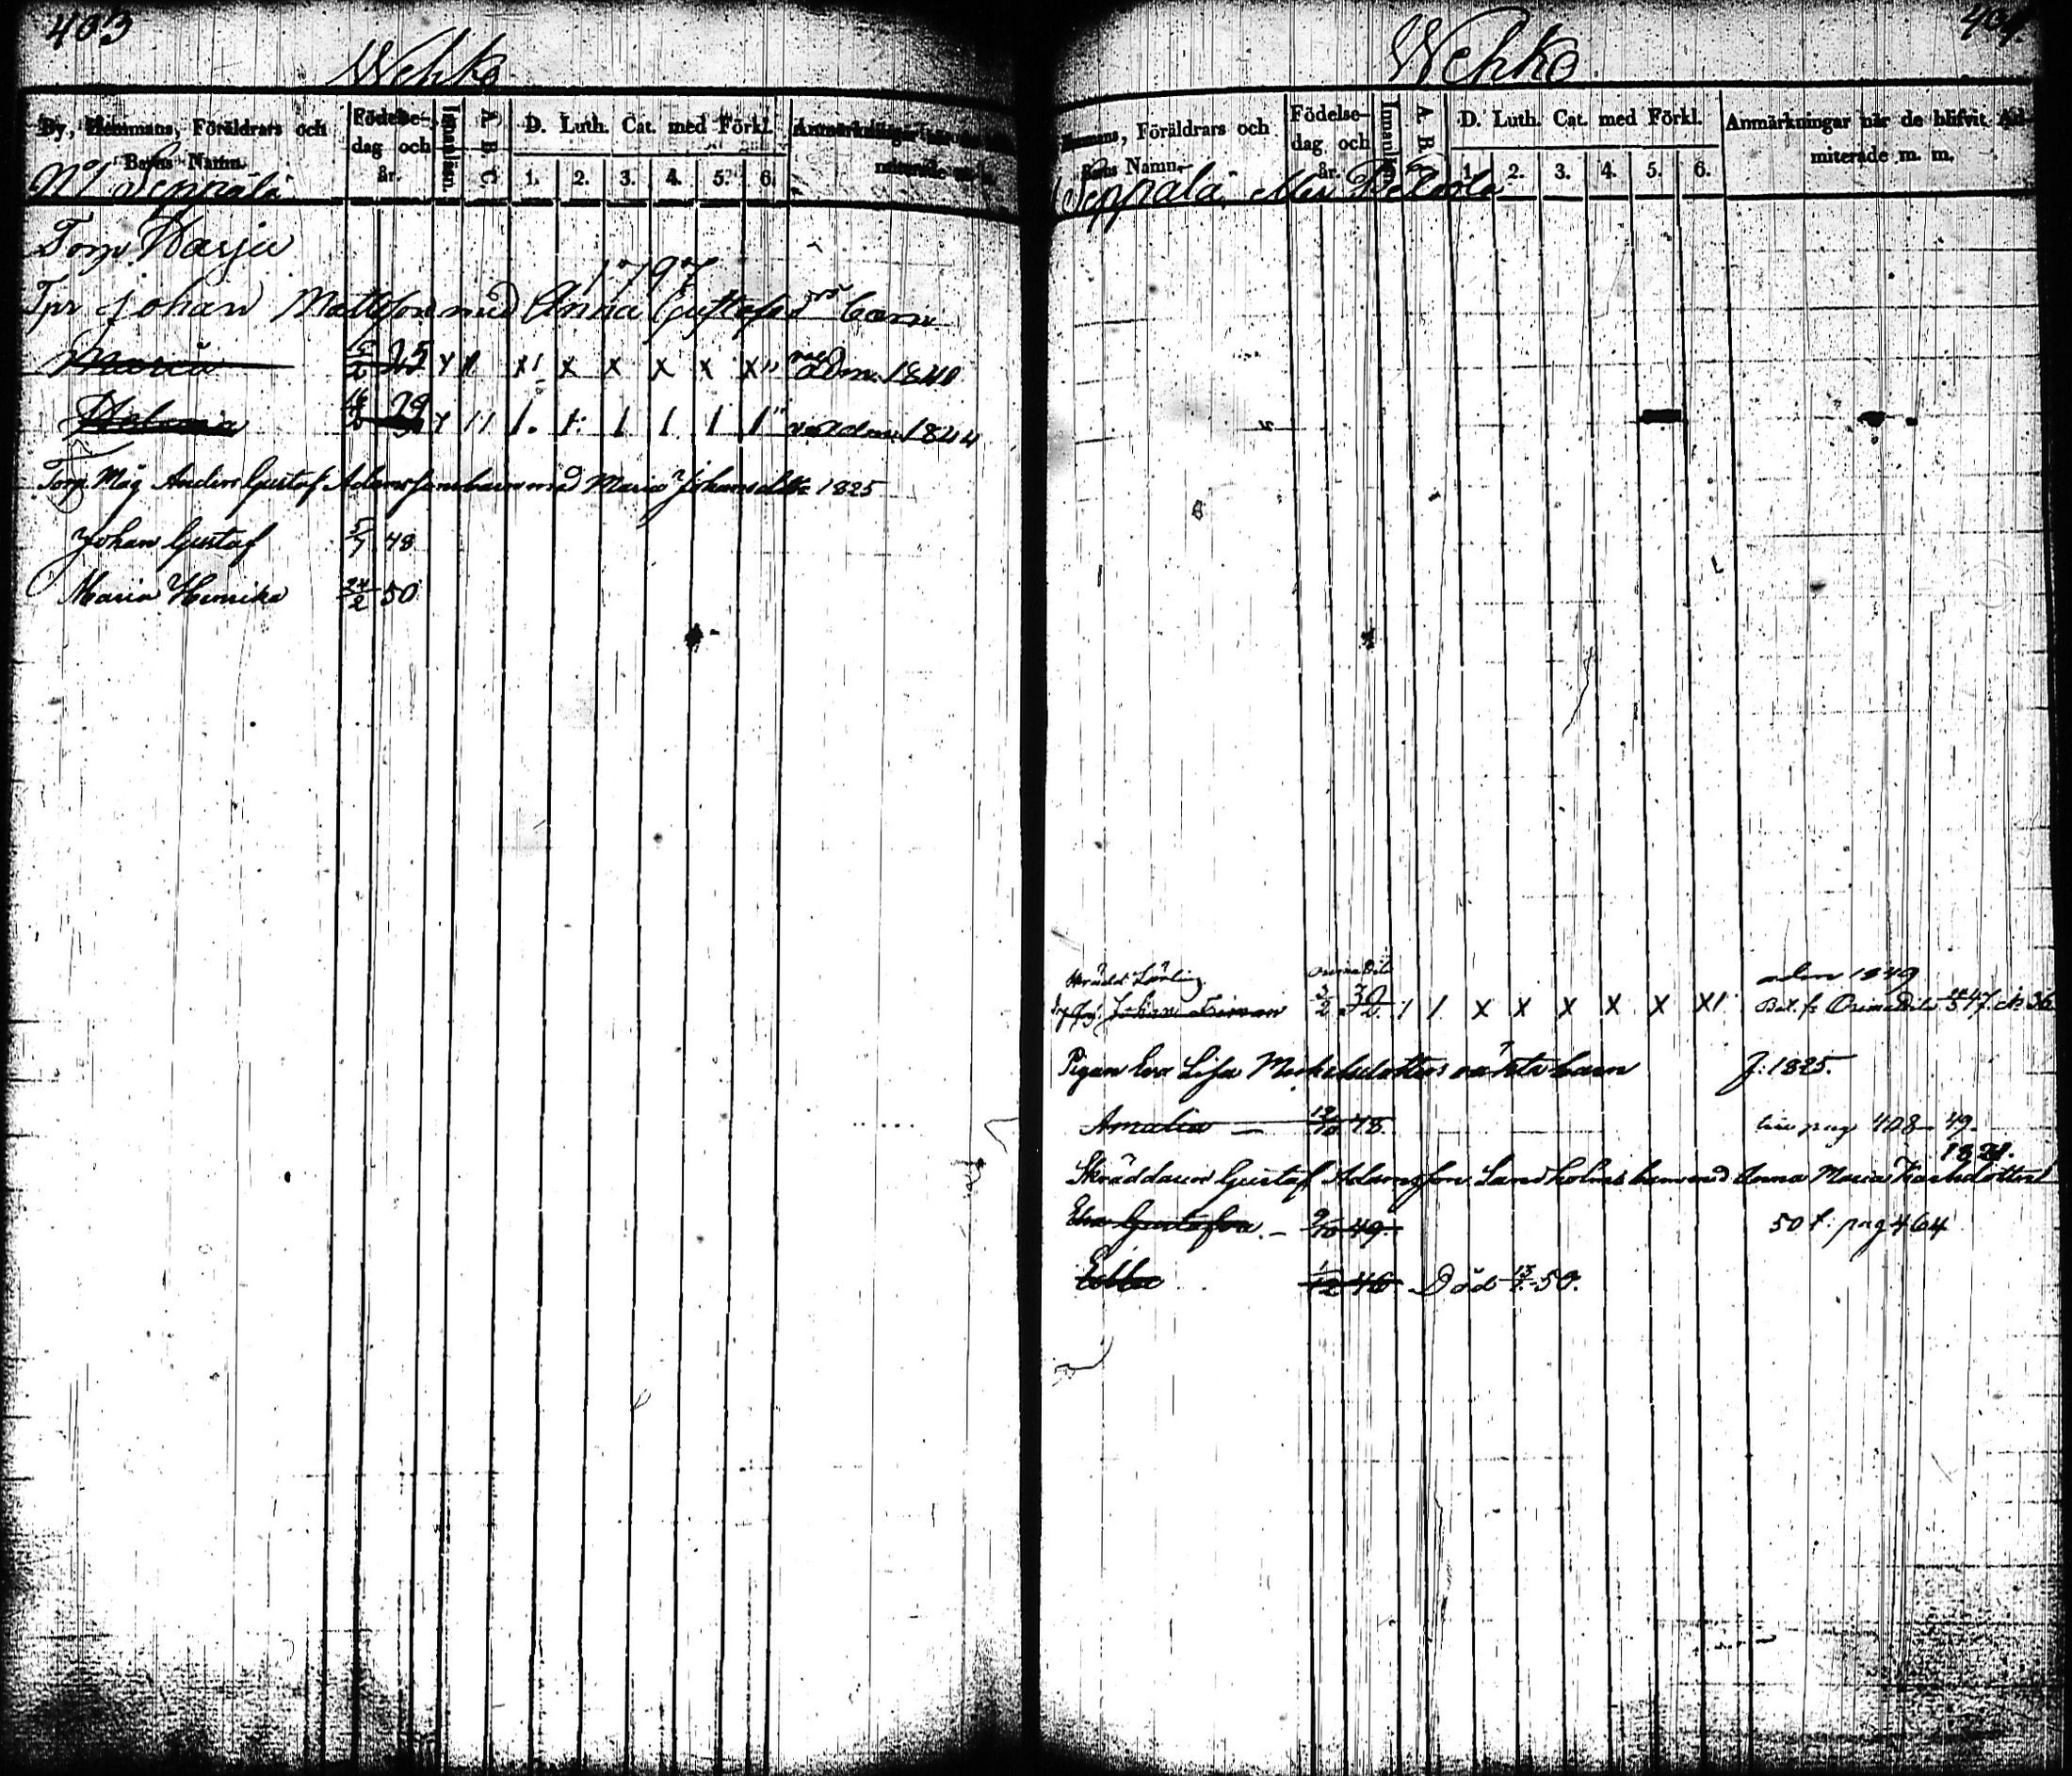 403
Wehko
By, Hemmans, Föräldrars och Barns Namn.
Födelse-dag och år.
Innanläsn.
A. B. C.
D. Luth. Cat. med Förkl.
1. 2. 3. 4. 5. 6.
Anmärkningar
miterade m. m.
No 1 Seppälä
Torp. Harju
1797
Tpr Johan Mattsson med Anna Gustafsdrs barn
Maria 25 x 11 x1 x x x x x" adm. 1841
Helena 29 11 1. 1. 1 1 1 1" adm. 1844
Torp. Måg Anders Gustaf Adamssons barn med Maria Johansdtr 1825
Johan Gustaf 5/7 48
Maria Henrika 24/2 50
404.
Wehko
Hemmans, Föräldrars och Barns Namn.
Födelse-dag och år.
Innanläsn.
A. B. C.
D. Luth. Cat. med Förkl.
1. 2. 3. 4. 5. 6.
Anmärkningar när de blifvit Ad-
miterade m. m.
Seppälä, eller
Skrädd. Lärling
adm 1849
Johan 3/2 30. 1 1 x x x x x x1 Bet. fr 47. 36
Pigan Eva Lisa Michelsdotters oäkta barn f: 1825.
Amalia — 48. pag 408 49.
1821.
Skräddaren Gustaf Adamsson Landholms barn med Anna Maria Karlsdotter
Eva Gustafva. – 9/10 49. 50 f: pag 464
Ebba 1/12 46 Död 50.